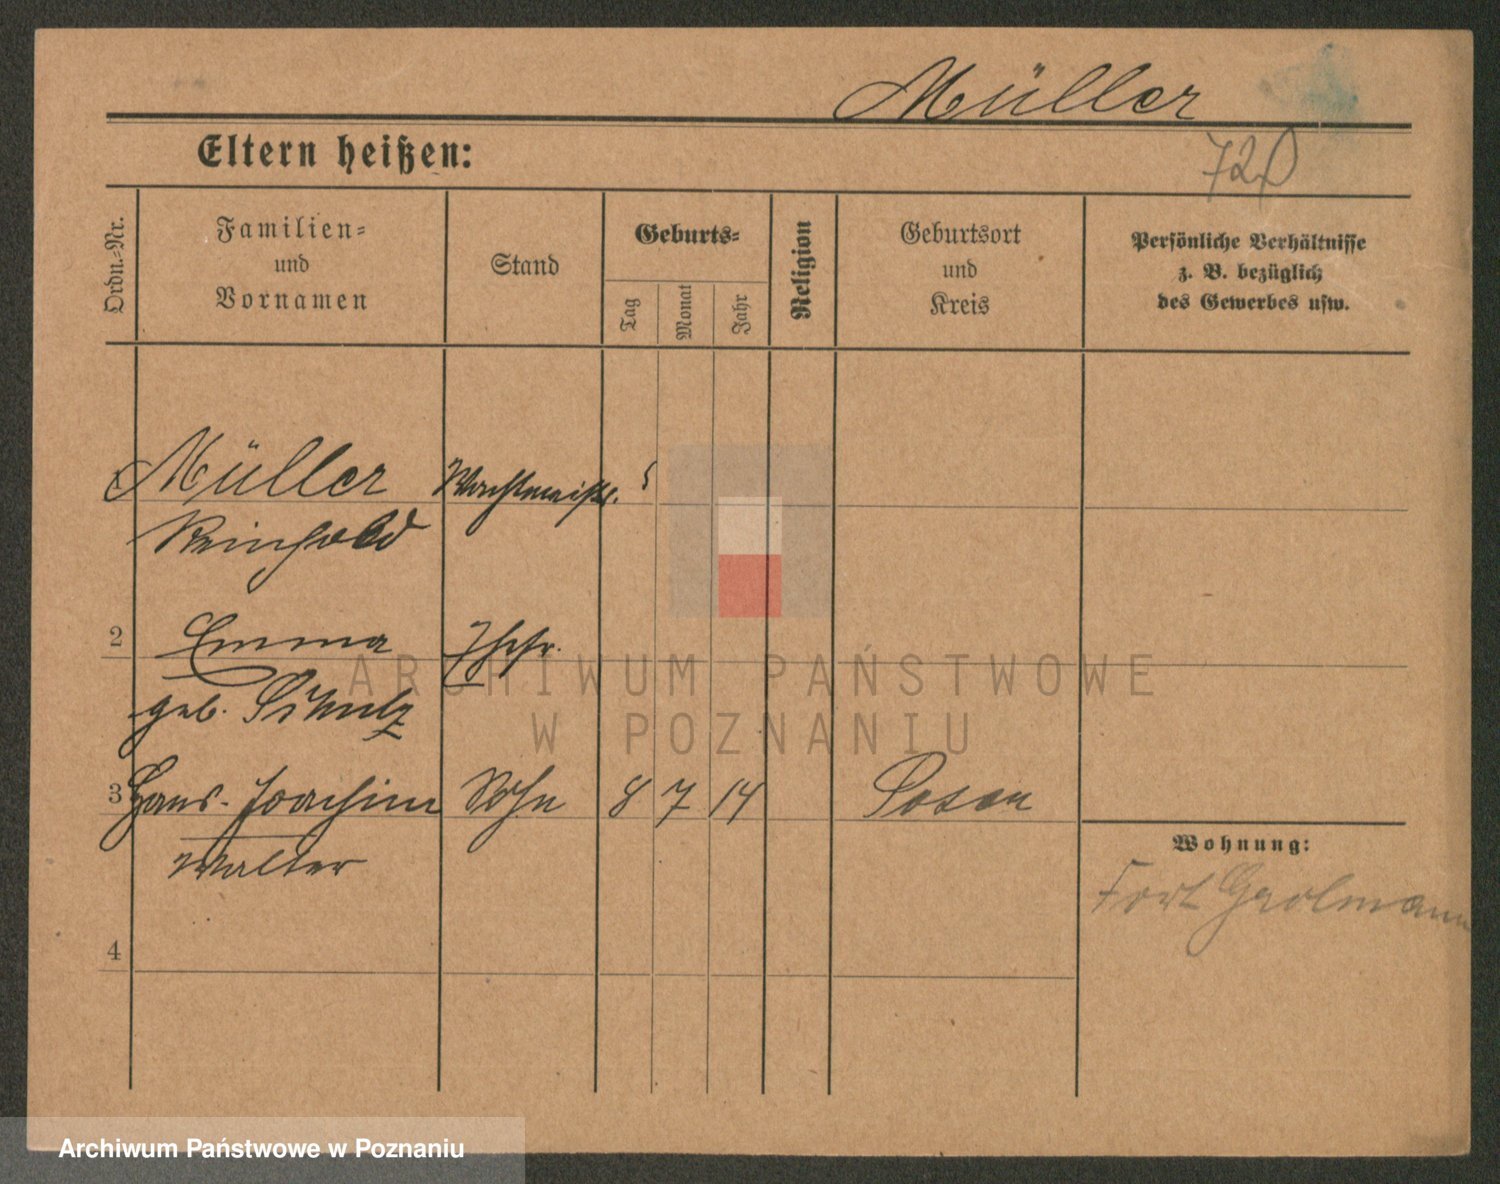 Müller
Eltern heißen:
720
Ordn.-Nr.
Familien-
und
Vornamen
Stand
Geburts-
Tag
Monat
Jahr
Religion
Geburtsort
und
Kreis
Persönliche Verhältnisse
z. B. bezüglich
des Gewerbes usw.
1 Müller Wachtmeistr.
Reinhold
2 Emma Ehefr.
geb. Schulz
3 Hans-Joachim Sohn 8 7 14 Posen
Walter
Wohnung:
Fort Grolmann
4
ARCHIWUM PAŃSTWOWE
W POZNANIU
Archiwum Państwowe w Poznaniu